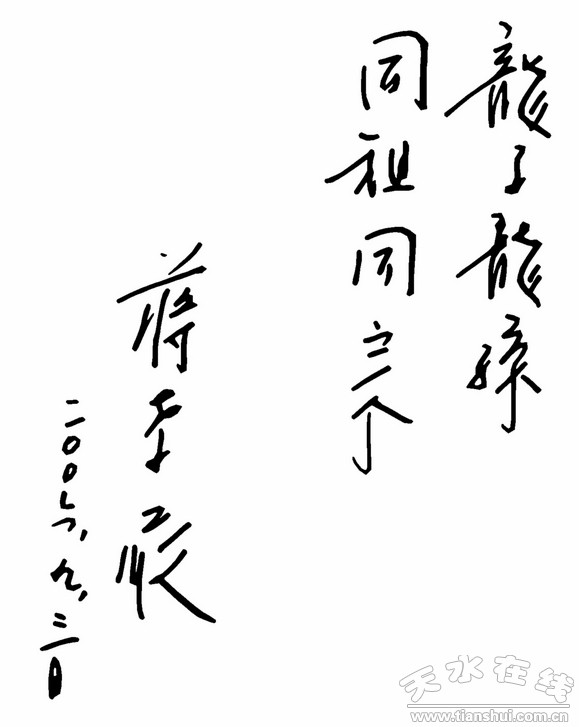 龍子龍孫
同祖同宗
蔣孝嚴
二00六、九、三日
天水在线
www.tianshui.com.cn